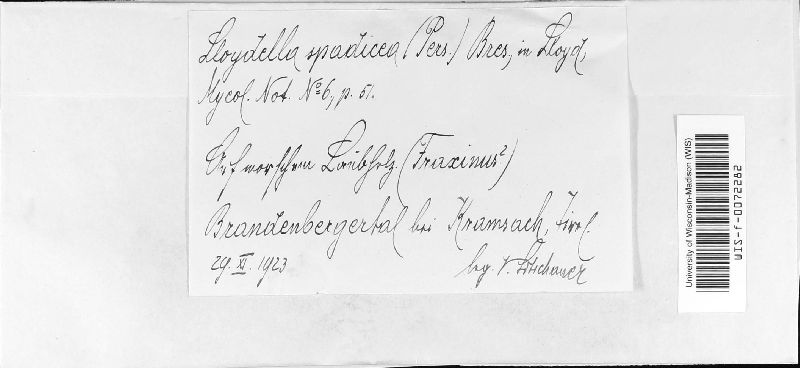 Lloydella spadicea (Pers.) Bres, in Lloyd,
Mycol. Not. No 6, p. 51.
Auf morschem Laubholz (Fraxinus?)
Brandenbergertal bei Kramsach, Tirol.
29. XI. 1923
leg. V. Litschauer
University of Wisconsin-Madison (WIS)
WIS-f-0072282